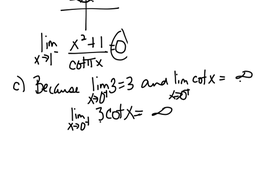 lim x→1⁻ (x²+1)/(cot πx) = 0
c) Because lim x→0⁺ 3 = 3 and lim x→0⁺ cot x = ∞
lim x→0⁺ 3 cot x = ∞